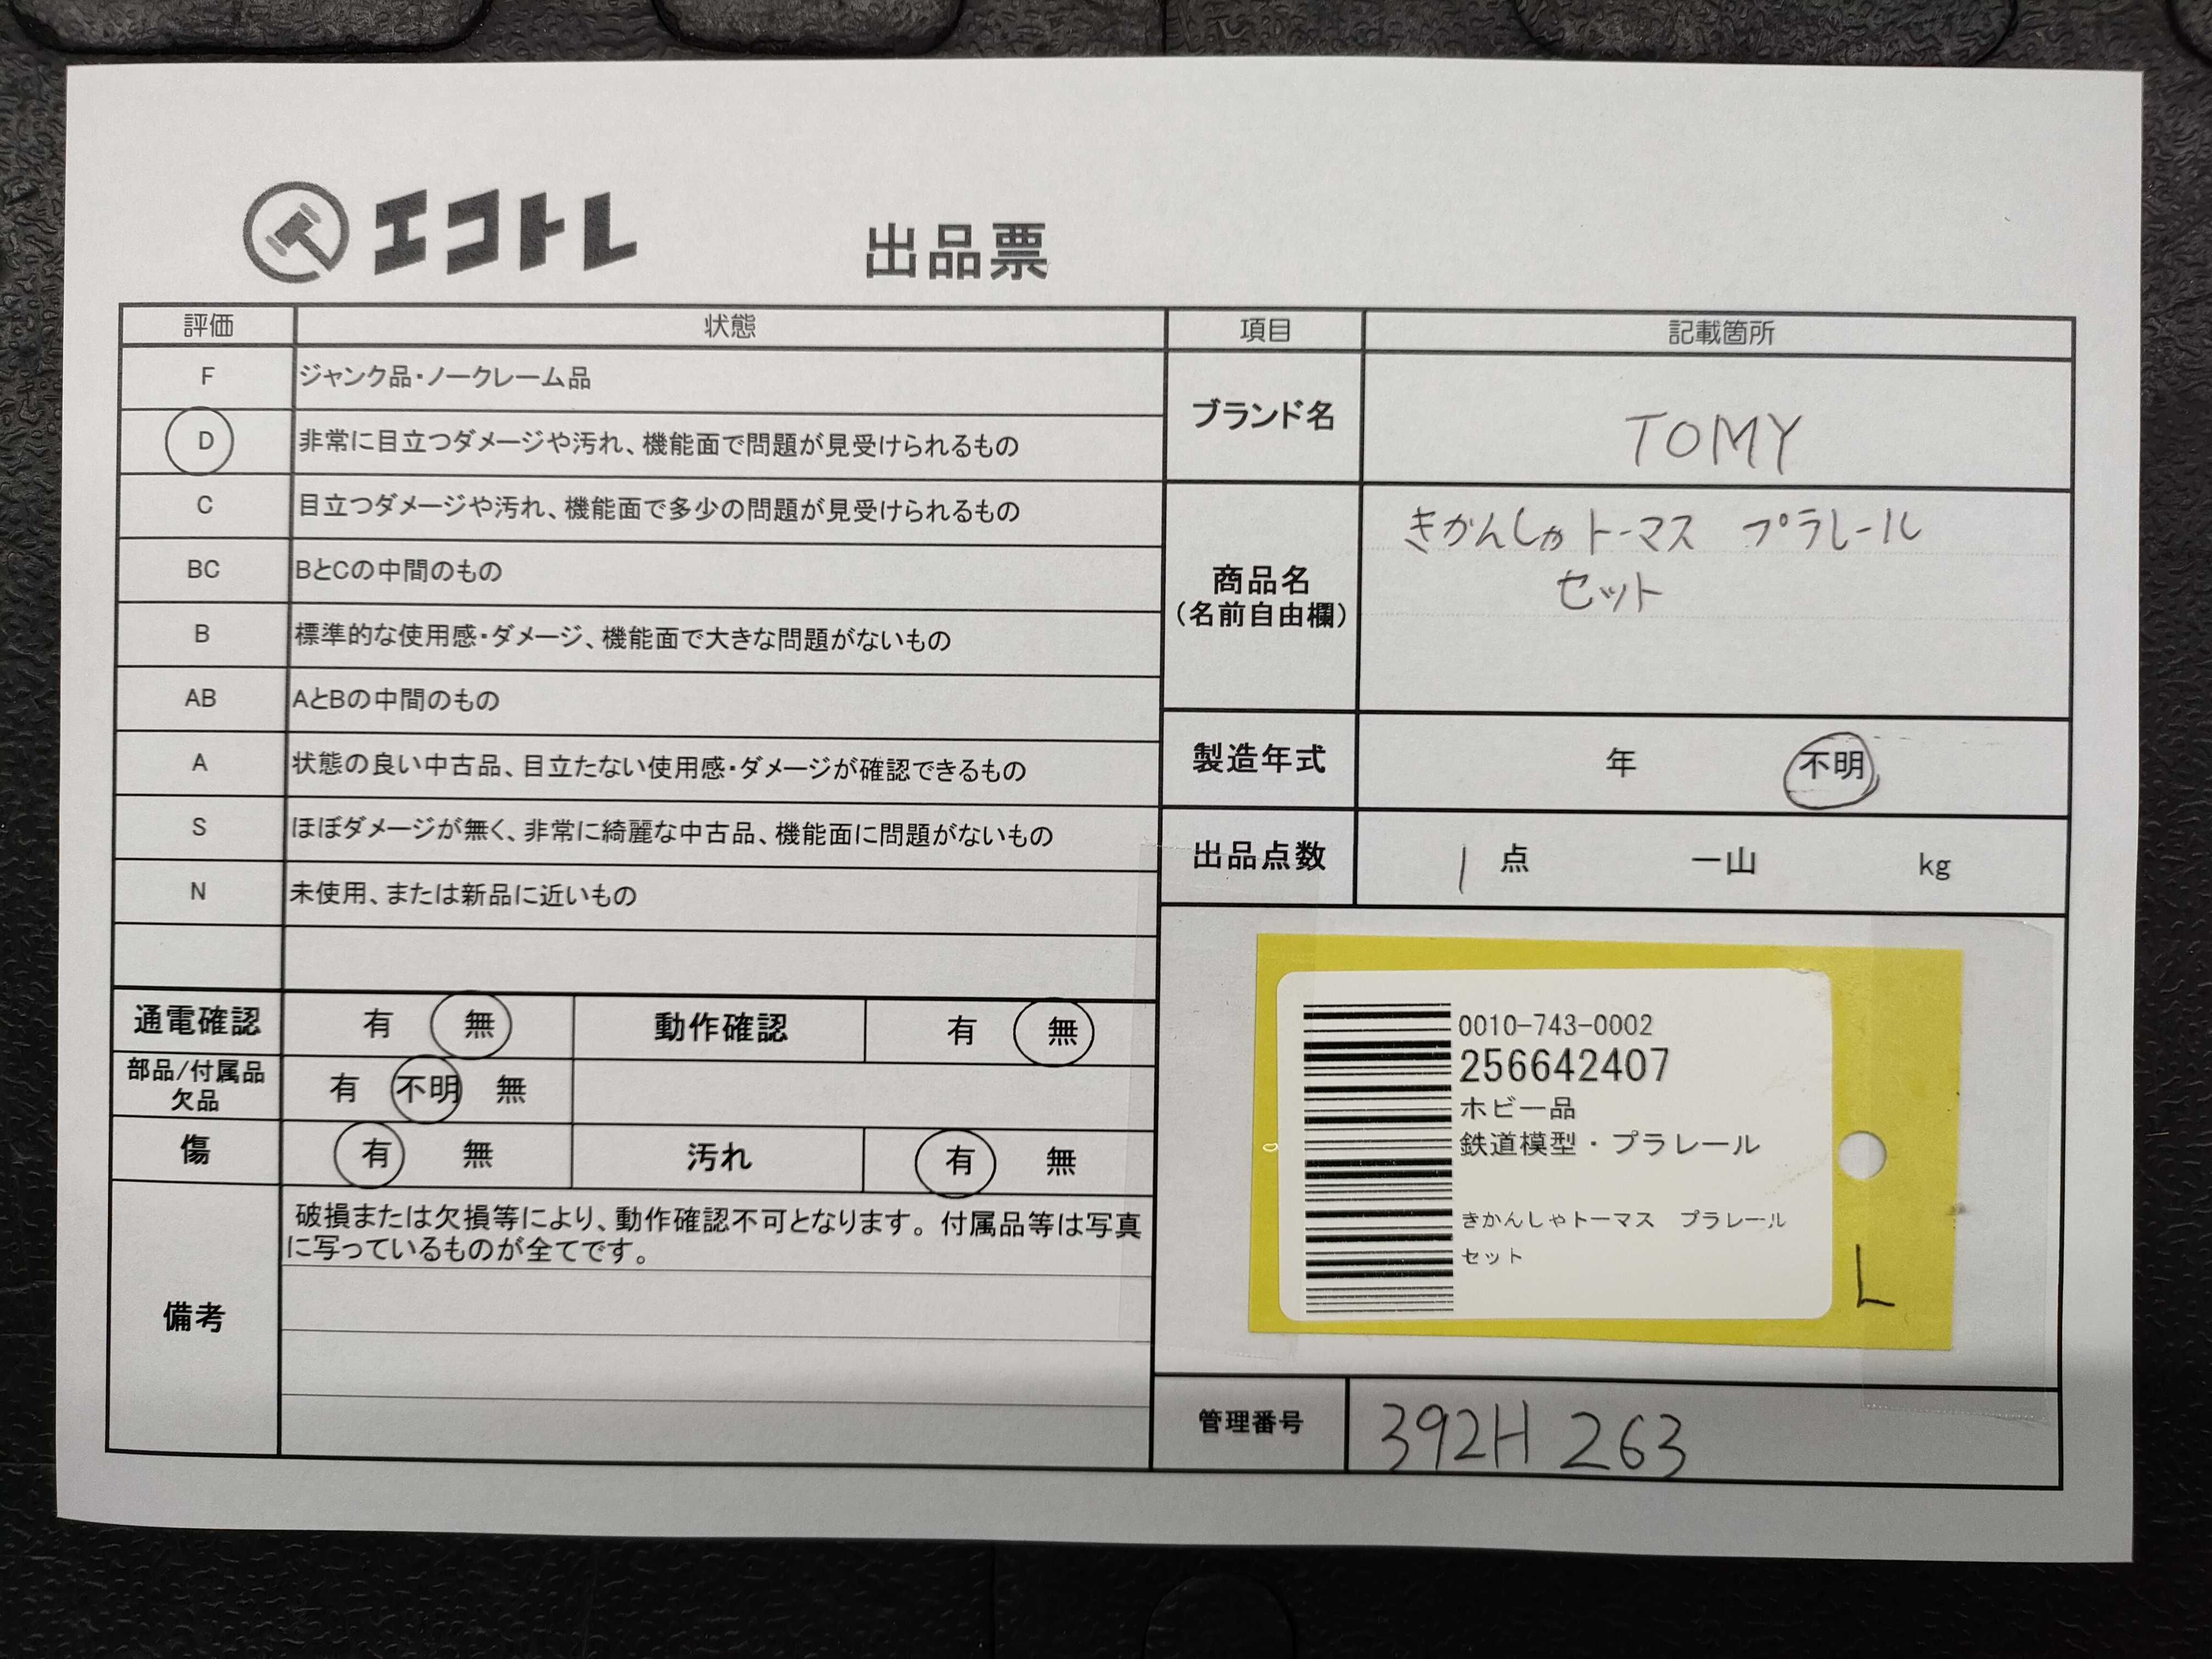 エコトレ
出品票
評価 状態
F ジャンク品・ノークレーム品
D 非常に目立つダメージや汚れ、機能面で問題が見受けられるもの
C 目立つダメージや汚れ、機能面で多少の問題が見受けられるもの
BC BとCの中間のもの
B 標準的な使用感・ダメージ、機能面で大きな問題がないもの
AB AとBの中間のもの
A 状態の良い中古品、目立たない使用感・ダメージが確認できるもの
S ほぼダメージが無く、非常に綺麗な中古品、機能面に問題がないもの
N 未使用、または新品に近いもの
通電確認 有 無 動作確認 有 無
部品/付属品
欠品
有 不明 無
傷 有 無 汚れ 有 無
備考
破損または欠損等により、動作確認不可となります。付属品等は写真
に写っているものが全てです。
項目 記載箇所
ブランド名 TOMY
商品名
(名前自由欄)
きかんしゃトーマス プラレール
セット
製造年式 年 不明
出品点数 1 点 一山 kg
0010-743-0002
256642407
ホビー品
鉄道模型・プラレール
きかんしゃトーマス プラレール
セット
L
管理番号 392H 263